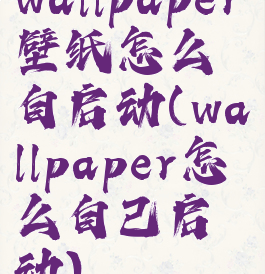 wallpaper
壁纸怎么
自启动(wa
llpaper怎
么自己启
动)